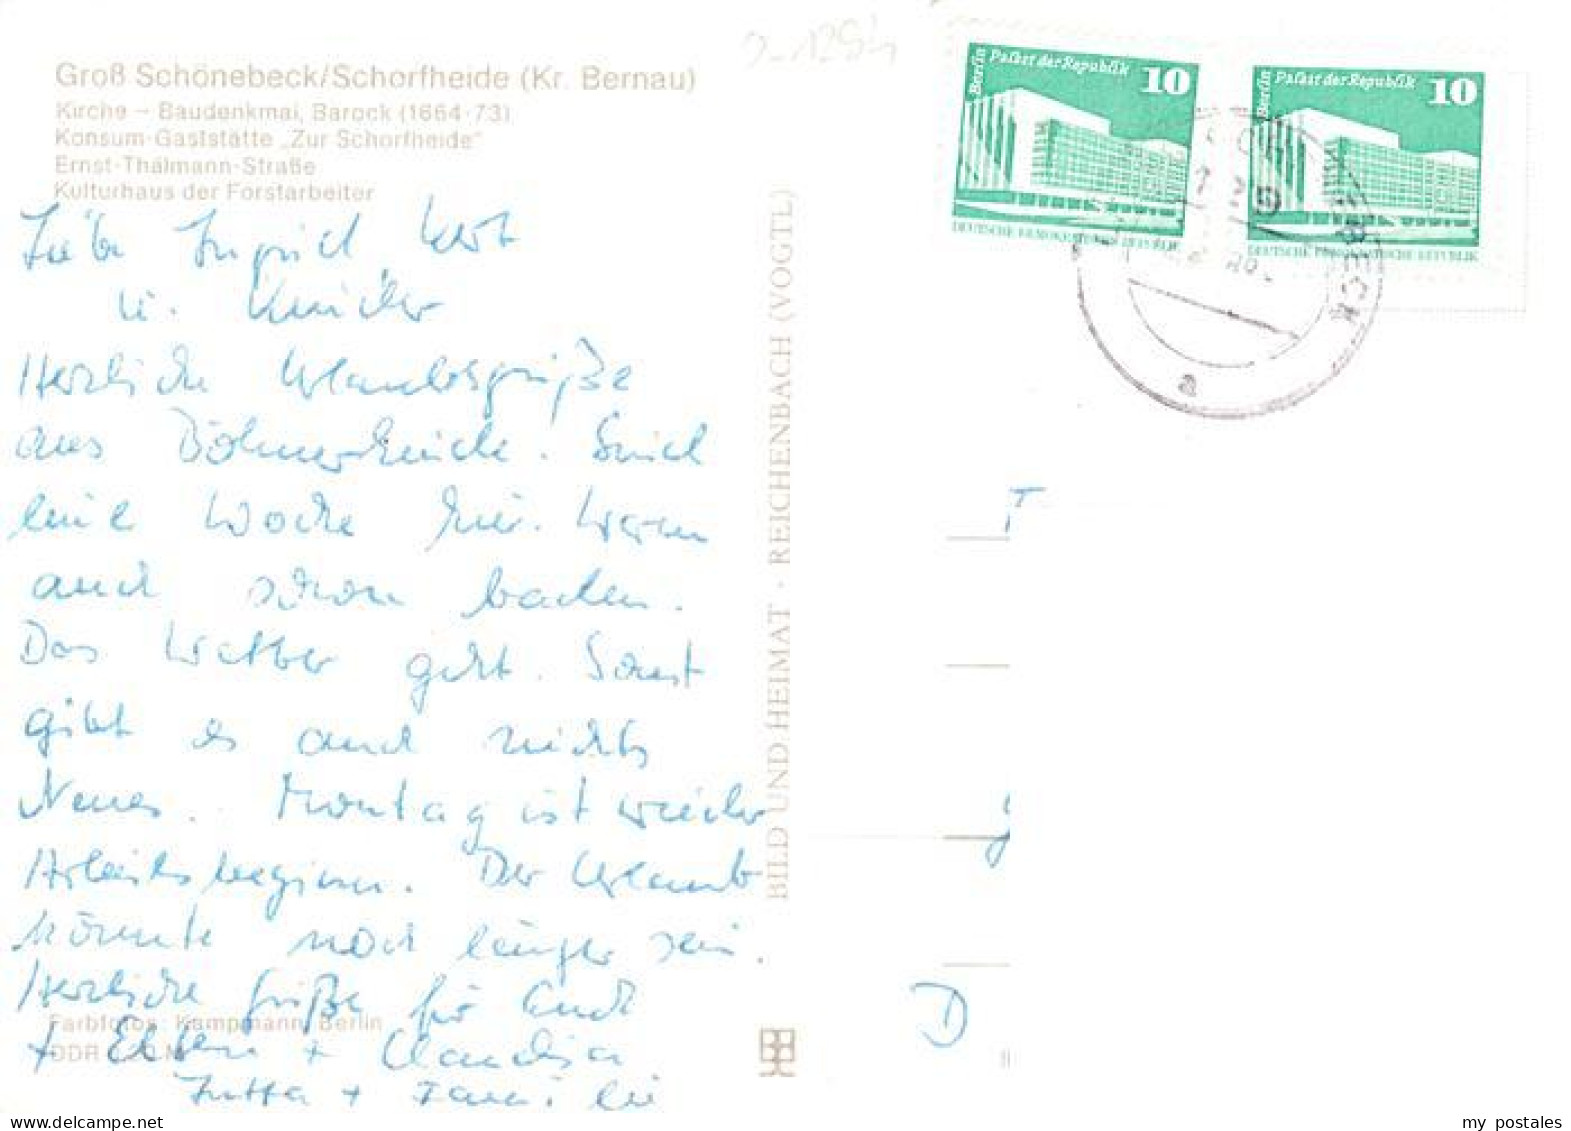 Groß Schönebeck/Schorfheide (Kr. Bernau)
Kirche – Baudenkmal, Barock (1664-73)
Konsum-Gaststätte „Zur Schorfheide"
Ernst-Thälmann-Straße
Kulturhaus der Forstarbeiter
Liebe Ingrid, Kert
u. Kinder
Herzliche Urlaubsgrüße
aus Böhmerheide. Sind
eine Woche hier. Waren
auch schon baden.
Das Wetter geht. Sonst
gibt es auch nichts
Neues. Montag ist wieder
Arbeitsbeginn. Der Urlaub
könnte noch länger sein.
Herzliche Grüße für Euch
+ Eltern + Claudia
Jutta + Familie
Farbfotos: Kampmann, Berlin
DDR
BILD UND HEIMAT · REICHENBACH (VOGTL)
Berlin Palast der Republik 10
DEUTSCHE DEMOKRATISCHE REPUBLIK
Berlin Palast der Republik 10
DEUTSCHE DEMOKRATISCHE REPUBLIK
BECK
a
D
my postales